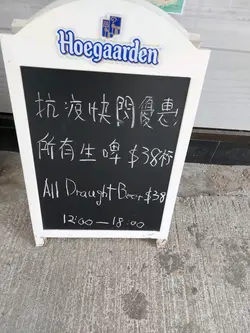 Hoegaarden
抗疫快閃優惠
所有生啤 $38杯
All Draught Beer $38
12:00—18:00